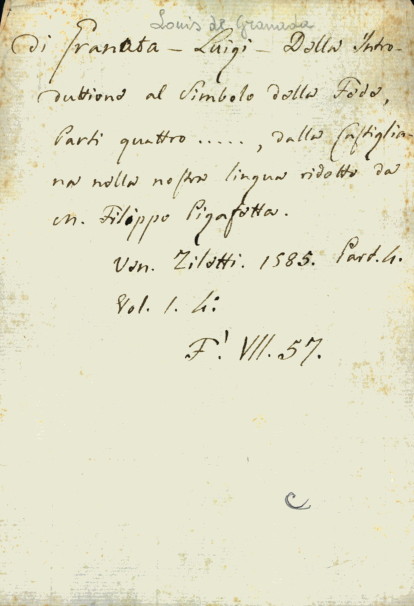 Louis de Granada
di Granata - Luigi - Della Intro-
duttione al Simbolo della Fede,
Parti quattro ....., dalla Castiglia-
na nella nostra lingua ridotte da
M. Filippo Pigafetta.
Ven. Ziletti. 1585. Part. 4.
Vol. 1. 4º
F' VII. 57.